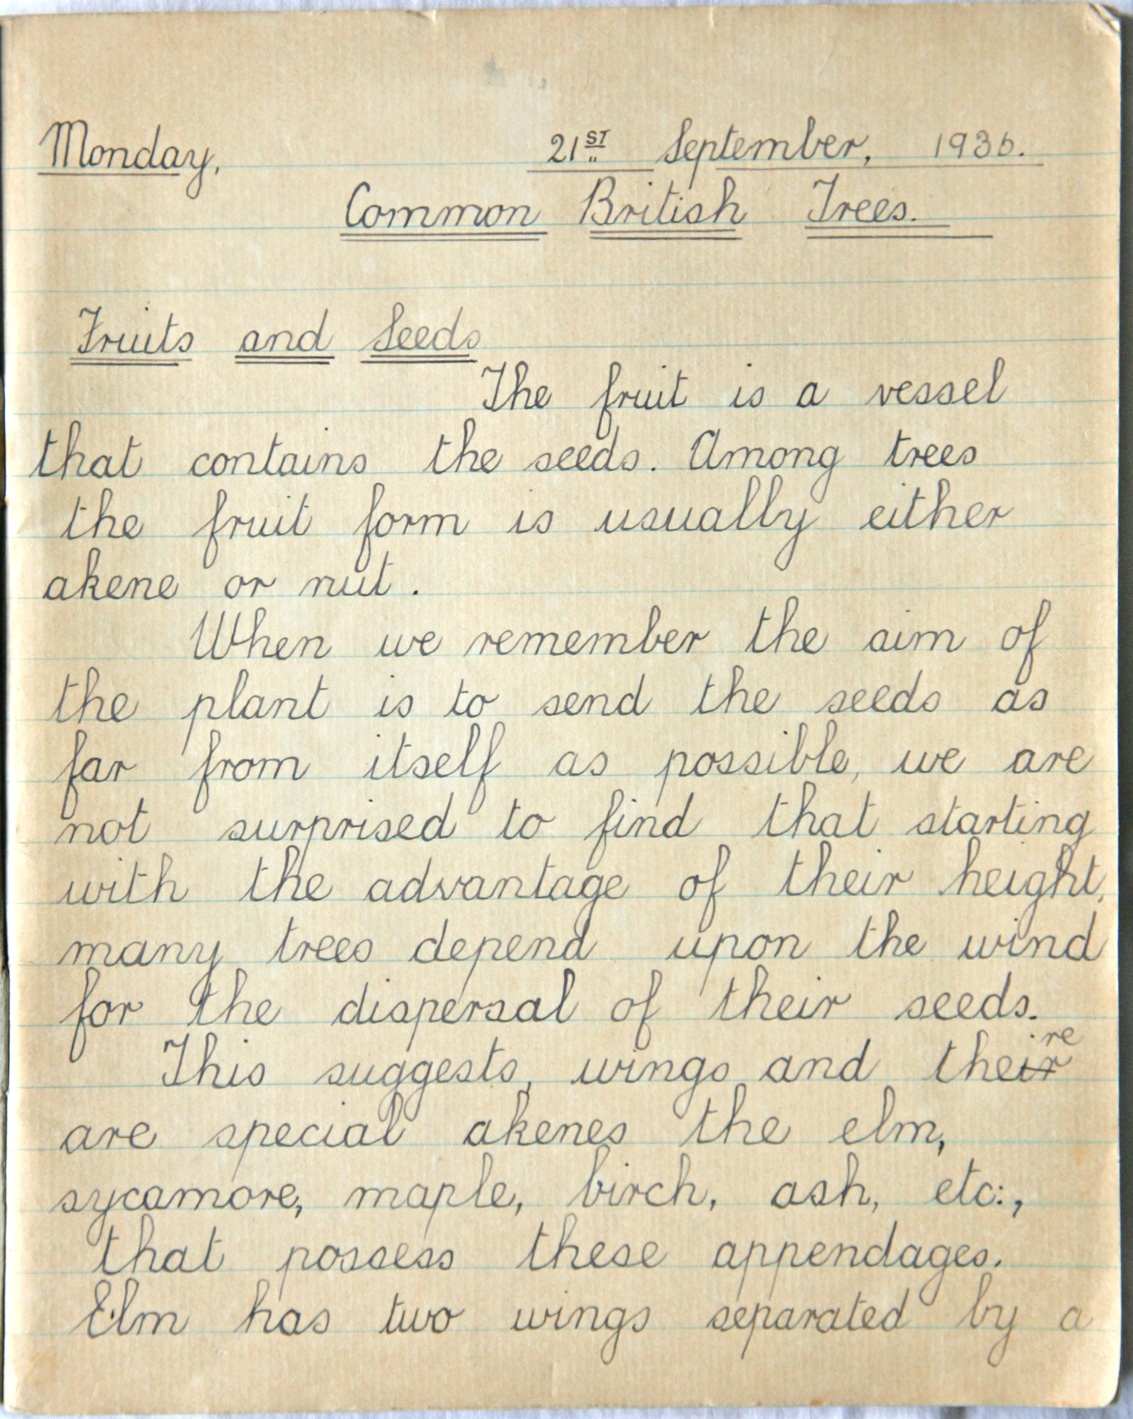 Monday, 21ST September, 1936.
Common British Trees.
Fruits and Seeds
The fruit is a vessel
that contains the seeds. Among trees
the fruit form is usually either
akene or nut.
When we remember the aim of
the plant is to send the seeds as
far from itself as possible, we are
not surprised to find that starting
with the advantage of their height,
many trees depend upon the wind
for the dispersal of their seeds.
This suggests, wings and theirre
are special akenes the elm,
sycamore, maple, birch, ash, etc:,
that possess these appendages.
Elm has two wings separated by a